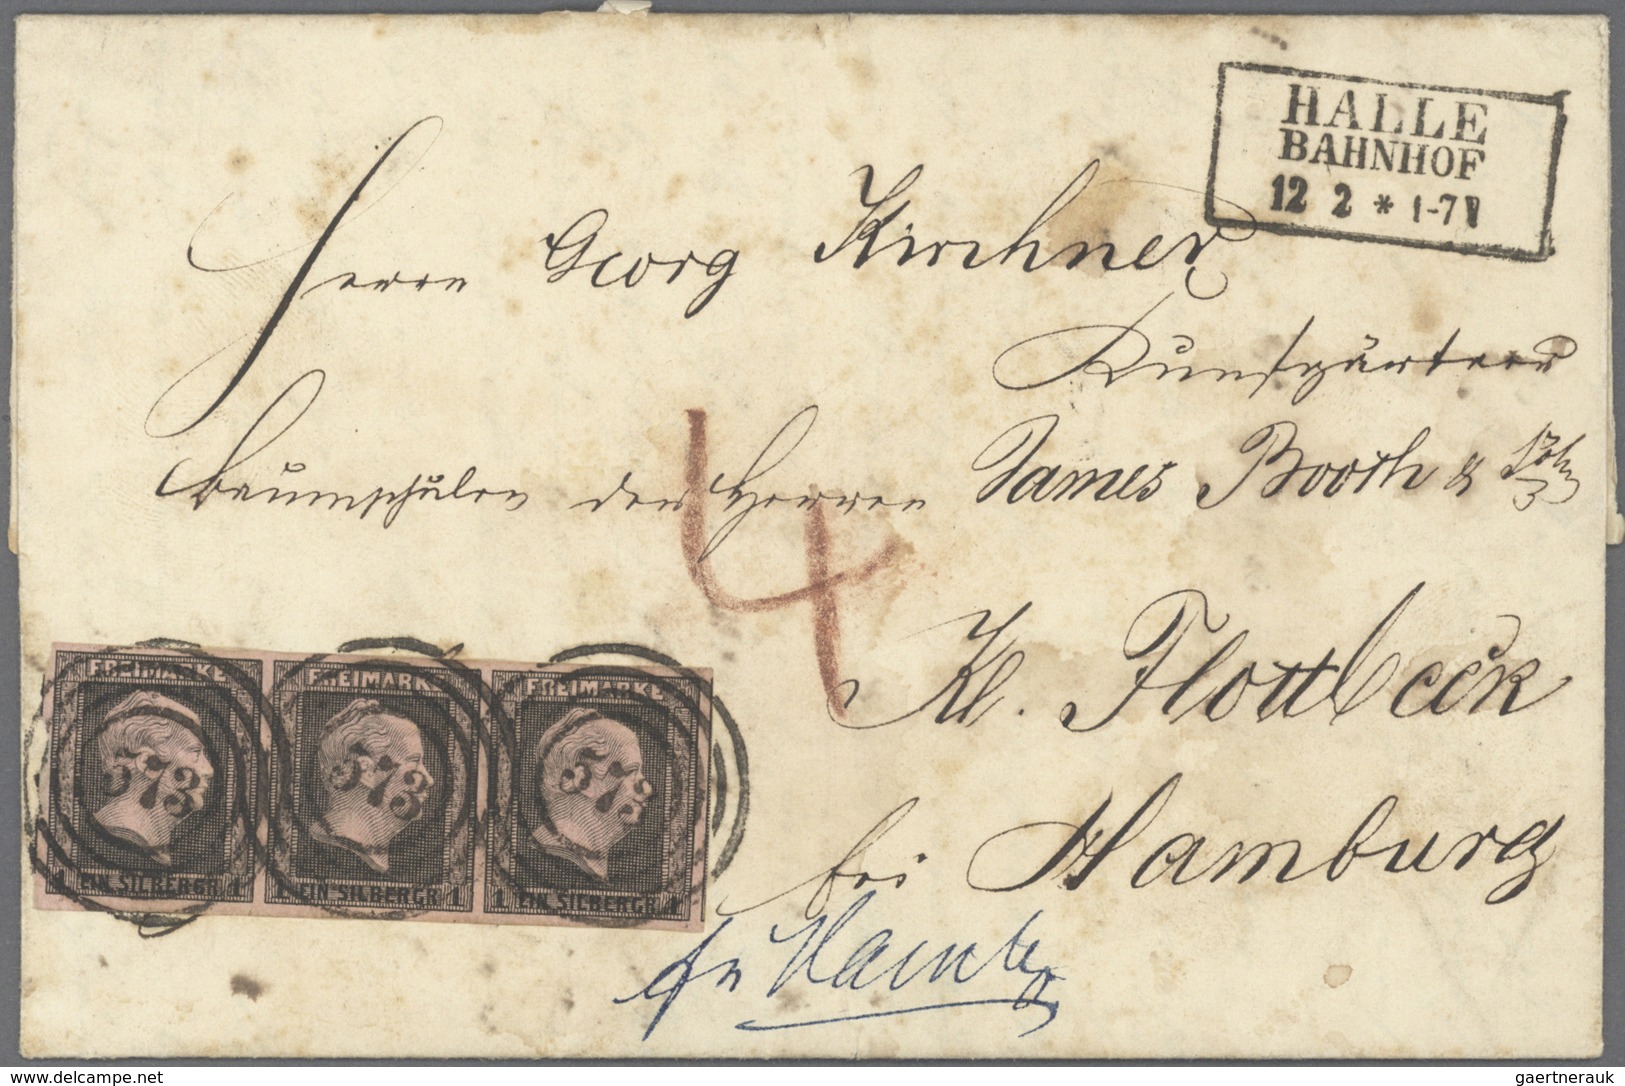 HALLE
BAHNHOF
12 2 * 1-7 V
Herrn Georg Kirchner
Kunstgärtner
Baumschulen der Herren James Booth & Söhne
4
Kl. Flottbeck
bei Hamburg
fr
FREIMARKE FREIMARKE FREIMARKE
573 573 573
1 EIN SILBERGR. 1 1 EIN SILBERGR. 1 1 EIN SILBERGR. 1
www.delcampe.net
gaertnerauk